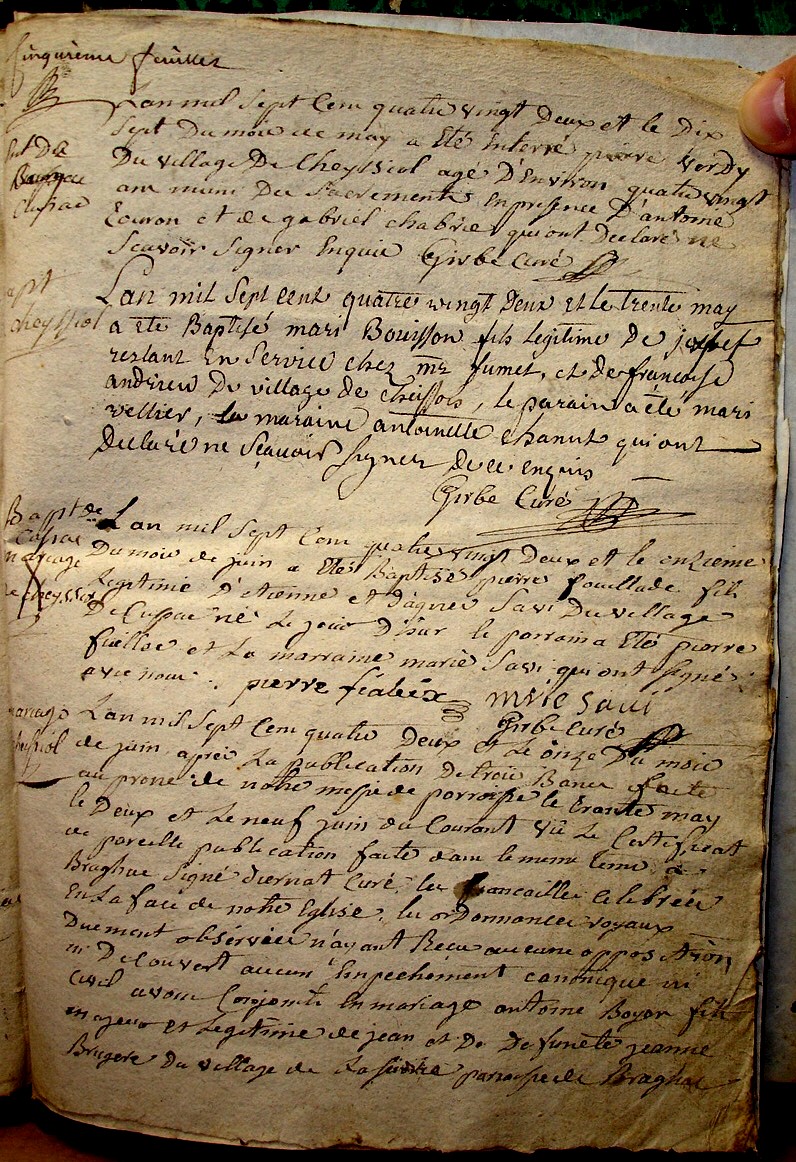 Cinquieme feuillet
Lan mil Sept Cent quatre vingt Deux et le Dix
Sept Du mois de may a Eté Enterré pierre Verdy
Du village De Cheyssiol agé D'Environ quatre vingt
ans muni Des Sacrements En presence D'antoine
Ecuron et de gabriel chabrie qui ont Declaré ne
Scavoir Signer Enquis Girbe Curé
Cheyssiol
Lan mil Sept cent quatre vingt Deux et le trente may
a été Baptisé mari Bouisson fils legitime de joseph
restant En Service chez mr fumet, et de francoise
andrieu Du village de Cheissiols, le parain a été mari
vellier, la maraine antoinette chanut qui ont
declaré ne Sçavoir Signer De ce enquis
Girbe Curé
Bapt de
Cussac
mariage
de cheyssiol
Lan mil Sept Cent quatre vingt Deux et le onzieme
Du mois de juin a Eté Baptisé pierre fouillade fils
Legitime D'etienne et D'agnes Savi Du village
De Cussac né Le jour D'hier le parrain a Eté pierre
et La marraine marie Savi qui ont Signé
avec nous pierre fialeix marie Savi
Girbe Curé
mariage
cheyssiol
Lan mil Sept Cent quatre Deux et Le onze Du mois
de juin apres La publication De trois Bancs faite
au prone de notre messe de parroisse le trante may
le Deux et Le neuf juin du Courant vû Le Certificat
de pareille publication faite dans le meme tems a
Braghac Signé diernat Curé, les fiancailles celebrées
En La face de notre Eglise, les ordonnances royaux
Duement observées n'ayant Recu aucune opposition
ni Decouvert aucun Empechement canonique ni
Civil avons Conjoints En mariage antoine Boyer fils
majeur et Legitime de jean et De Defunte jeanne
Brugere Du village de parroisse de Braghac